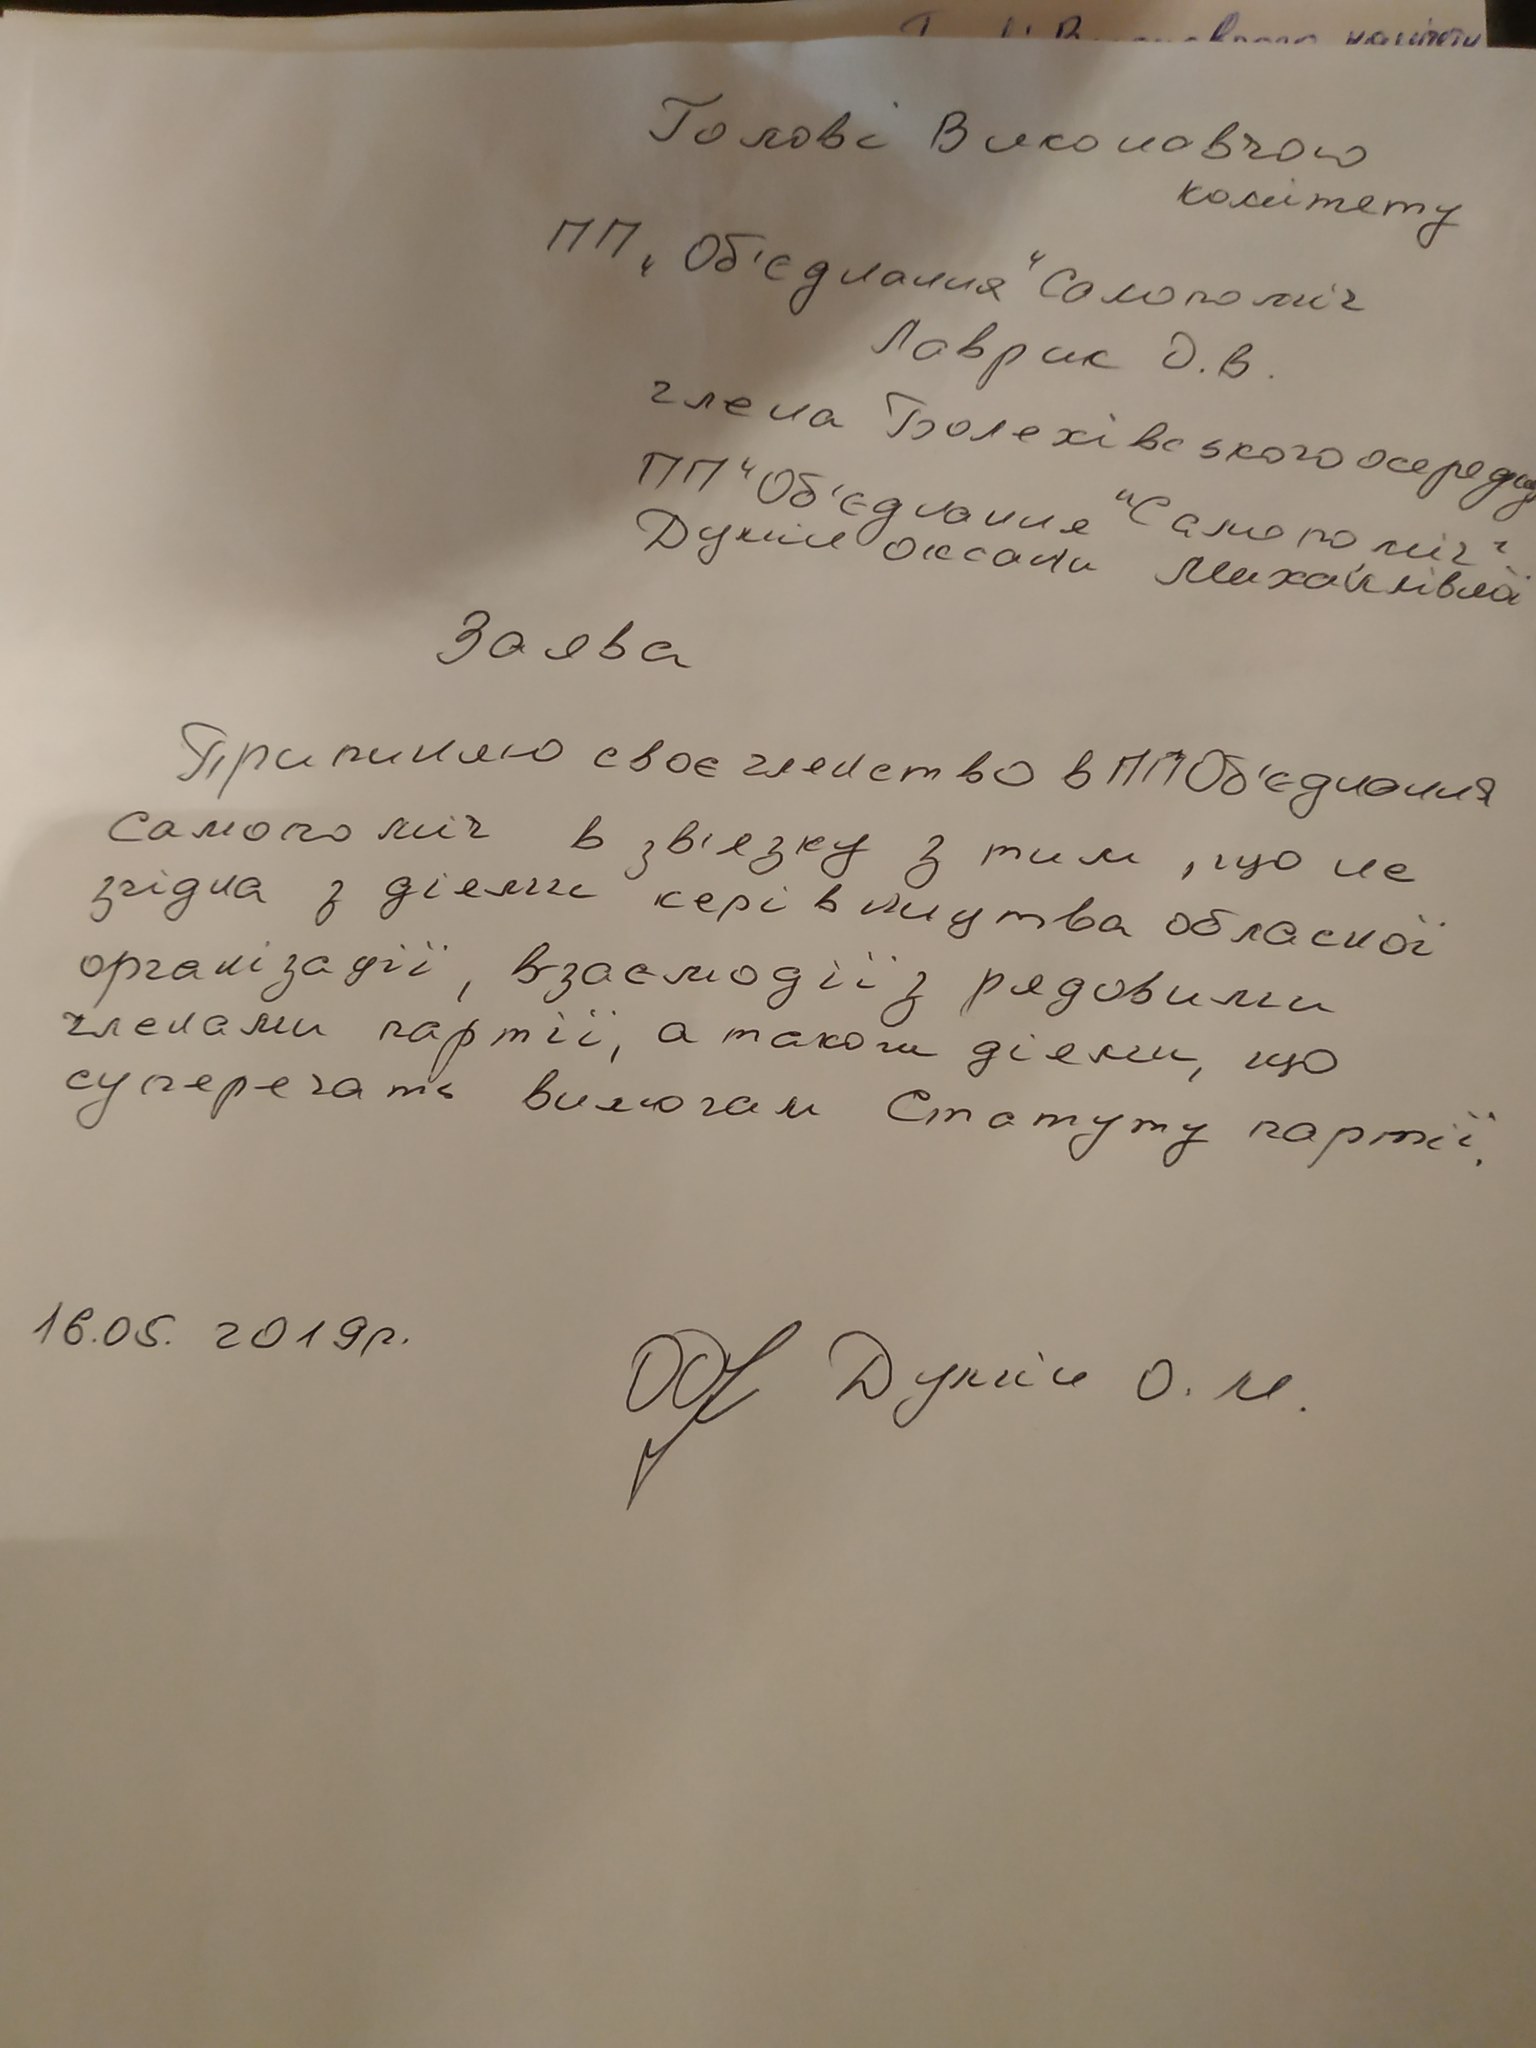 Голові Виконавчого
комітету
ПП „Об'єднання" Самопоміч
Лаврик О.В.
члена Болехівського осередку
ПП "Об'єднання "Самопоміч"
Оксани Михайлівни
Заява
Припиняю своє членство в ПП Об'єднання
Самопоміч в зв'язку з тим, що не
згідна з діями керівництва обласної
організації, взаємодії з рядовими
членами партії, а також діями, що
суперечать вимогам Статуту партії.
16.05.2019р.
О.М.